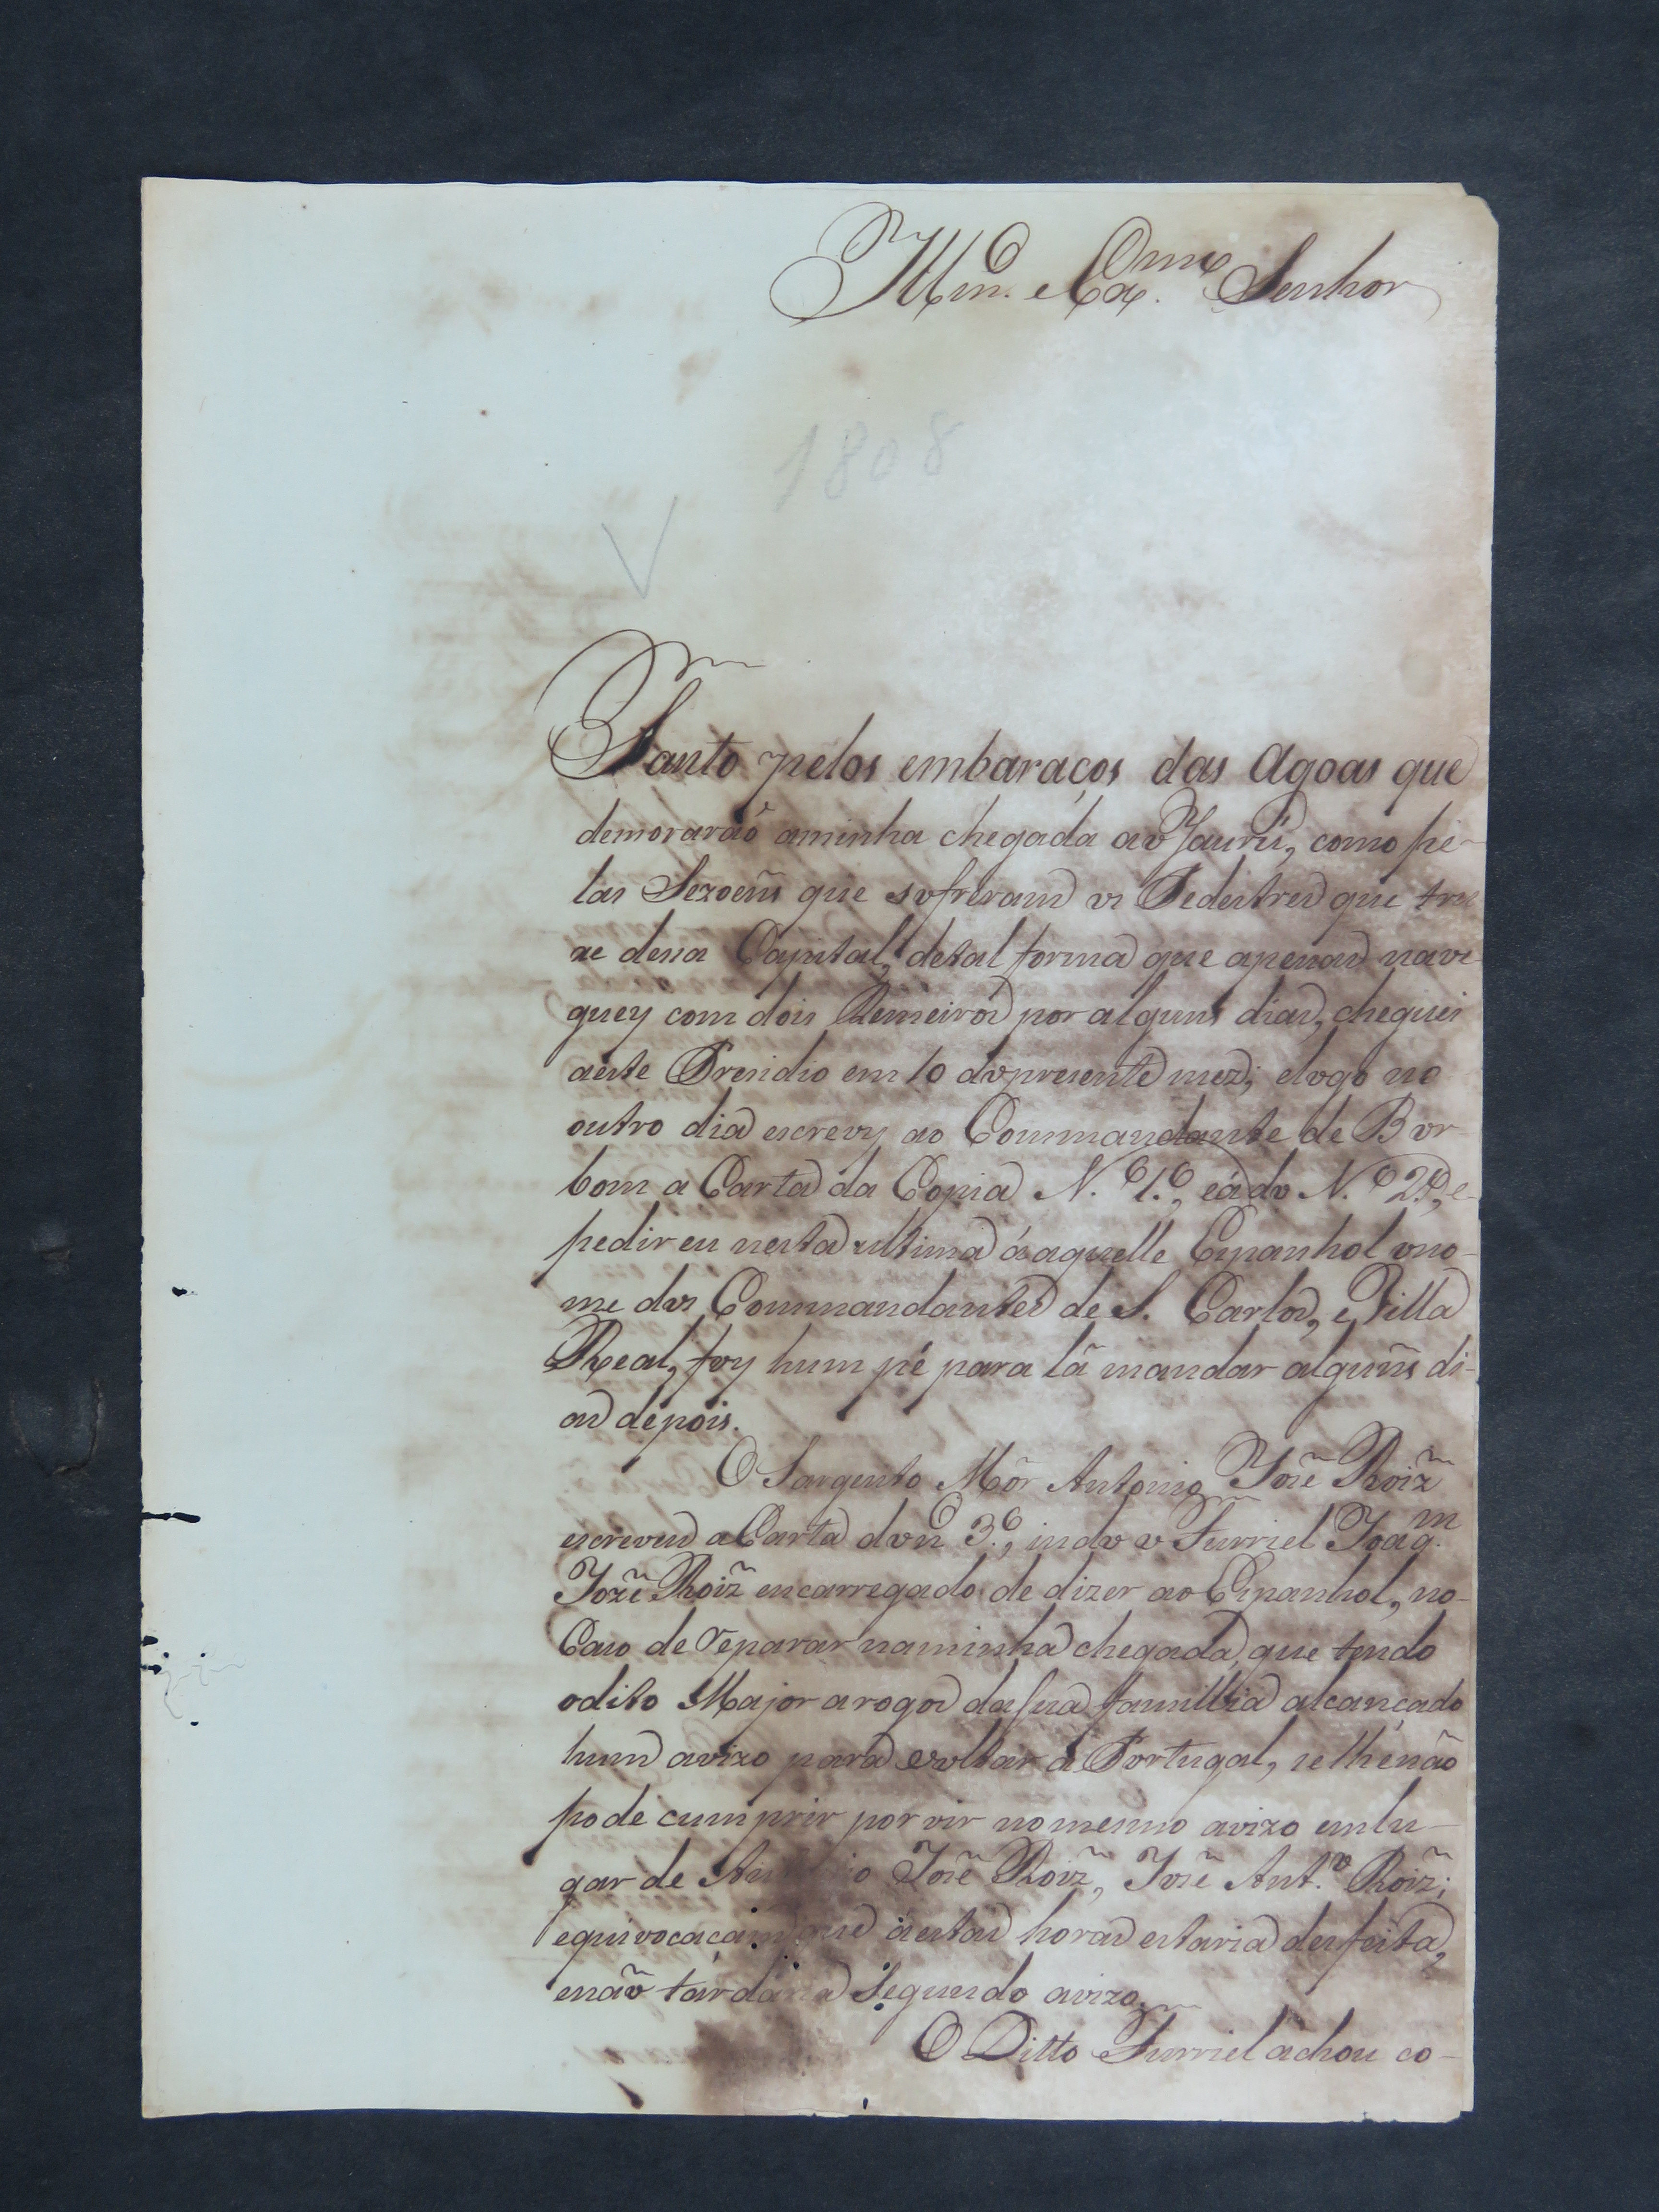 Illm.º e Ex.mo Senhor
1808
V
Tanto pelos embaraços das Agoas que
demorarão aminha chegada ao Jaurú, como pe-
las Sezoeñs que sofreram os Pedestres que trou
xe dessa Capital, detal forma que apenas nave
guey com dois Remeiros por alguns dias, cheguei
aeste Presidio em 10 do presente mez; elogo no
outro dia escrevy ao Commandante de Bor-
bom a Carta da Copia N.º 1.º, eádo N.º 2.º, e
pedir eu nesta ultima áaquelle Espanhol ono-
me dos Commandantes de S. Carlos, e Villa
Real, foy hum pé para lá mandar alguñs di-
as depois.
O Sargento Mór Antonio José Roiz
escreveo a Carta do n.º 3.º, indo o Furriel Joaq.m
Jozé Roiz encarregado de dizer ao Espanhol, no
Cazo de reparar naminha chegada, que tendo
odito Major arogos dasua famillia alcançado
hum avizo para voltar á Portugal, selhenão
pode cumprir por vir nomesmo avizo emlu-
gar de Antonio José Roiz, José Ant.º Roiz;
equivocaçam que áestas horas estaria desfeita,
enão tardaria Segundo avizo.
O Ditto Furriel achou co-